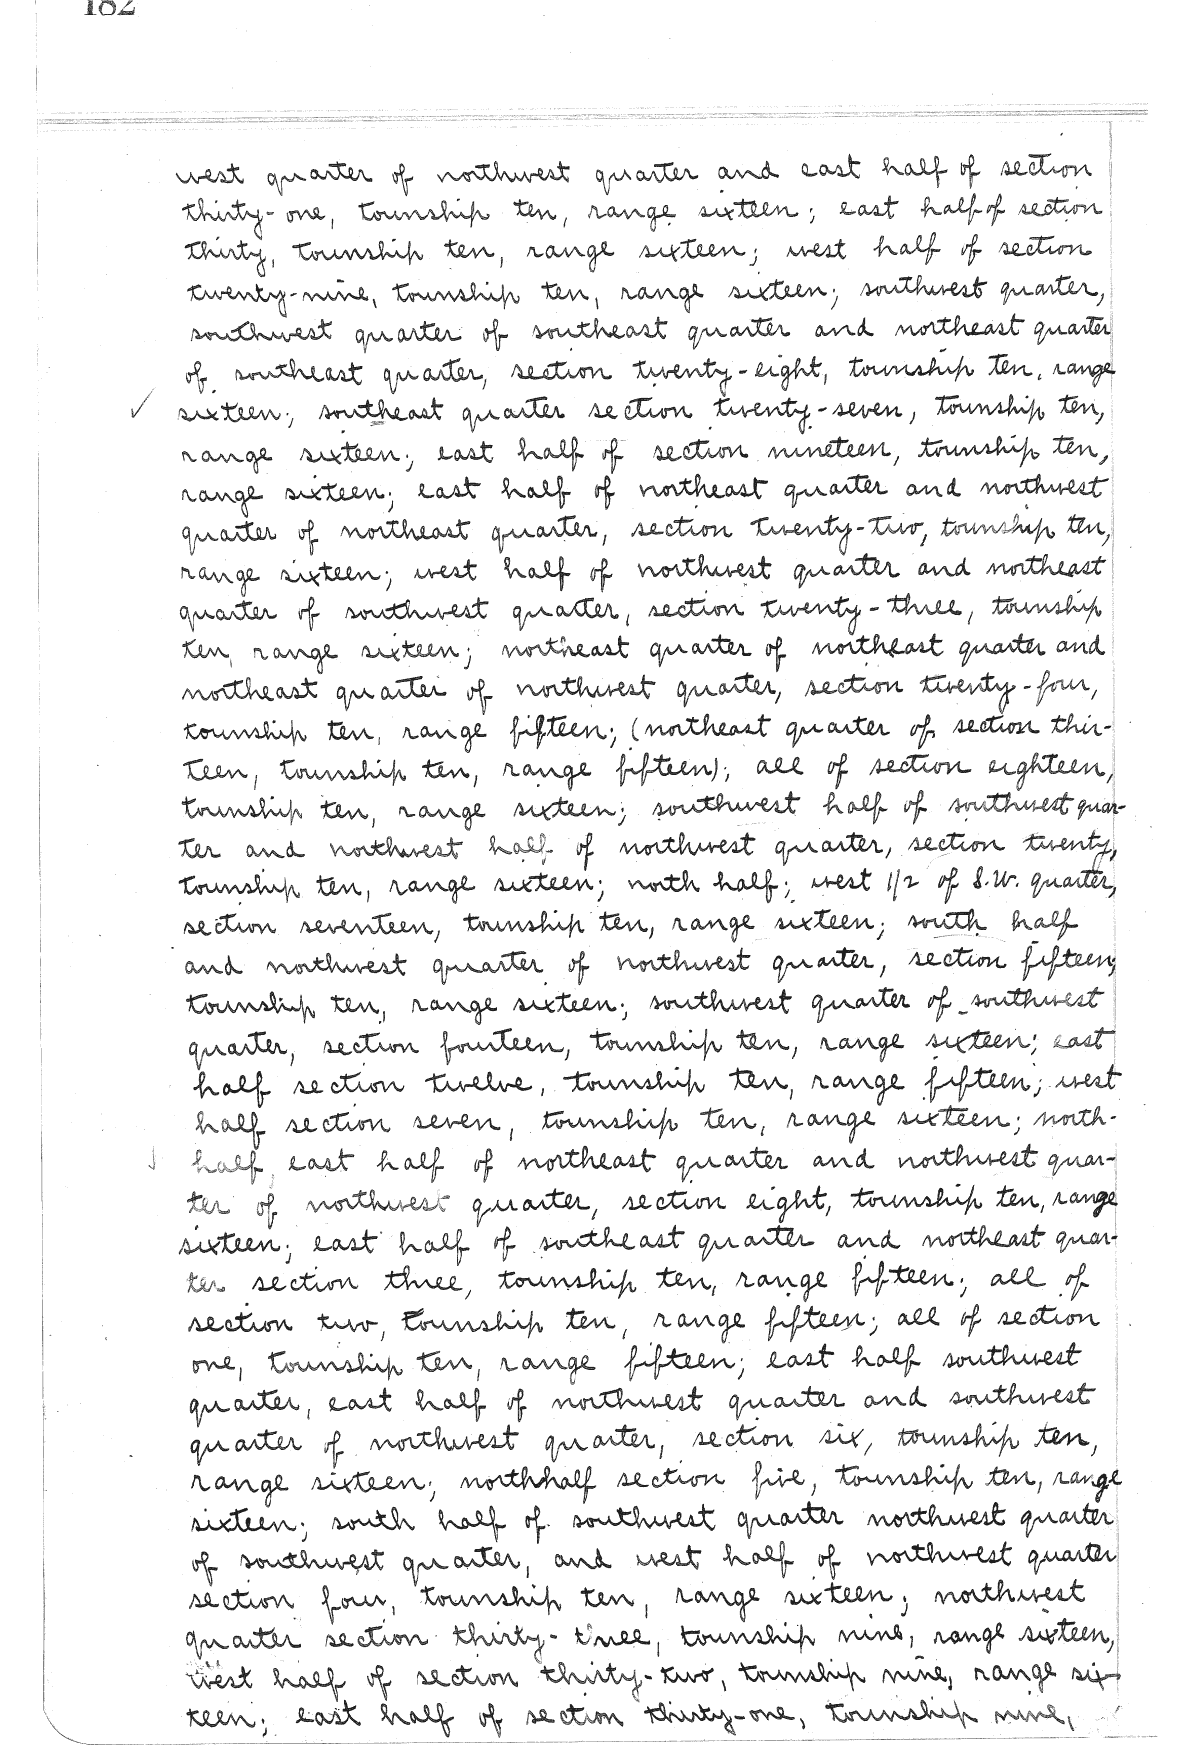 182
west quarter of northwest quarter and east half of section
thirty-one, township ten, range sixteen; east half of section
thirty, township ten, range sixteen; west half of section
twenty-nine, township ten, range sixteen; southwest quarter,
southwest quarter of southeast quarter and northeast quarter
of southeast quarter, section twenty-eight, township ten, range
✓ sixteen; southeast quarter section twenty-seven, township ten,
range sixteen; east half of section nineteen, township ten,
range sixteen; east half of northeast quarter and northwest
quarter of northeast quarter, section twenty-two, township ten,
range sixteen; west half of northwest quarter and northeast
quarter of southwest quarter, section twenty-three, township
ten, range sixteen; northeast quarter of northeast quarter and
northeast quarter of northwest quarter, section twenty-four,
township ten, range fifteen; (northeast quarter of section thir-
teen, township ten, range fifteen); all of section eighteen,
township ten, range sixteen; southwest half of southwest quar-
ter and northwest half of northwest quarter, section twenty,
township ten, range sixteen; north half; west 1/2 of S.W. quarter,
section seventeen, township ten, range sixteen; south half
and northwest quarter of northwest quarter, section fifteen,
township ten, range sixteen; southwest quarter of southwest
quarter, section fourteen, township ten, range sixteen; east
half section twelve, township ten, range fifteen; west
half section seven, township ten, range sixteen; north-
half, east half of northeast quarter and northwest quar-
ter of northwest quarter, section eight, township ten, range
sixteen; east half of southeast quarter and northeast quar-
ter section three, township ten, range fifteen; all of
section two, township ten, range fifteen; all of section
one, township ten, range fifteen; east half southwest
quarter, east half of northwest quarter and southwest
quarter of northwest quarter, section six, township ten,
range sixteen; north half section five, township ten, range
sixteen; south half of southwest quarter northwest quarter
of southwest quarter, and west half of northwest quarter
section four, township ten, range sixteen; northwest
quarter section thirty-three, township nine, range sixteen,
west half of section thirty-two, township nine, range six-
teen; east half of section thirty-one, township nine,